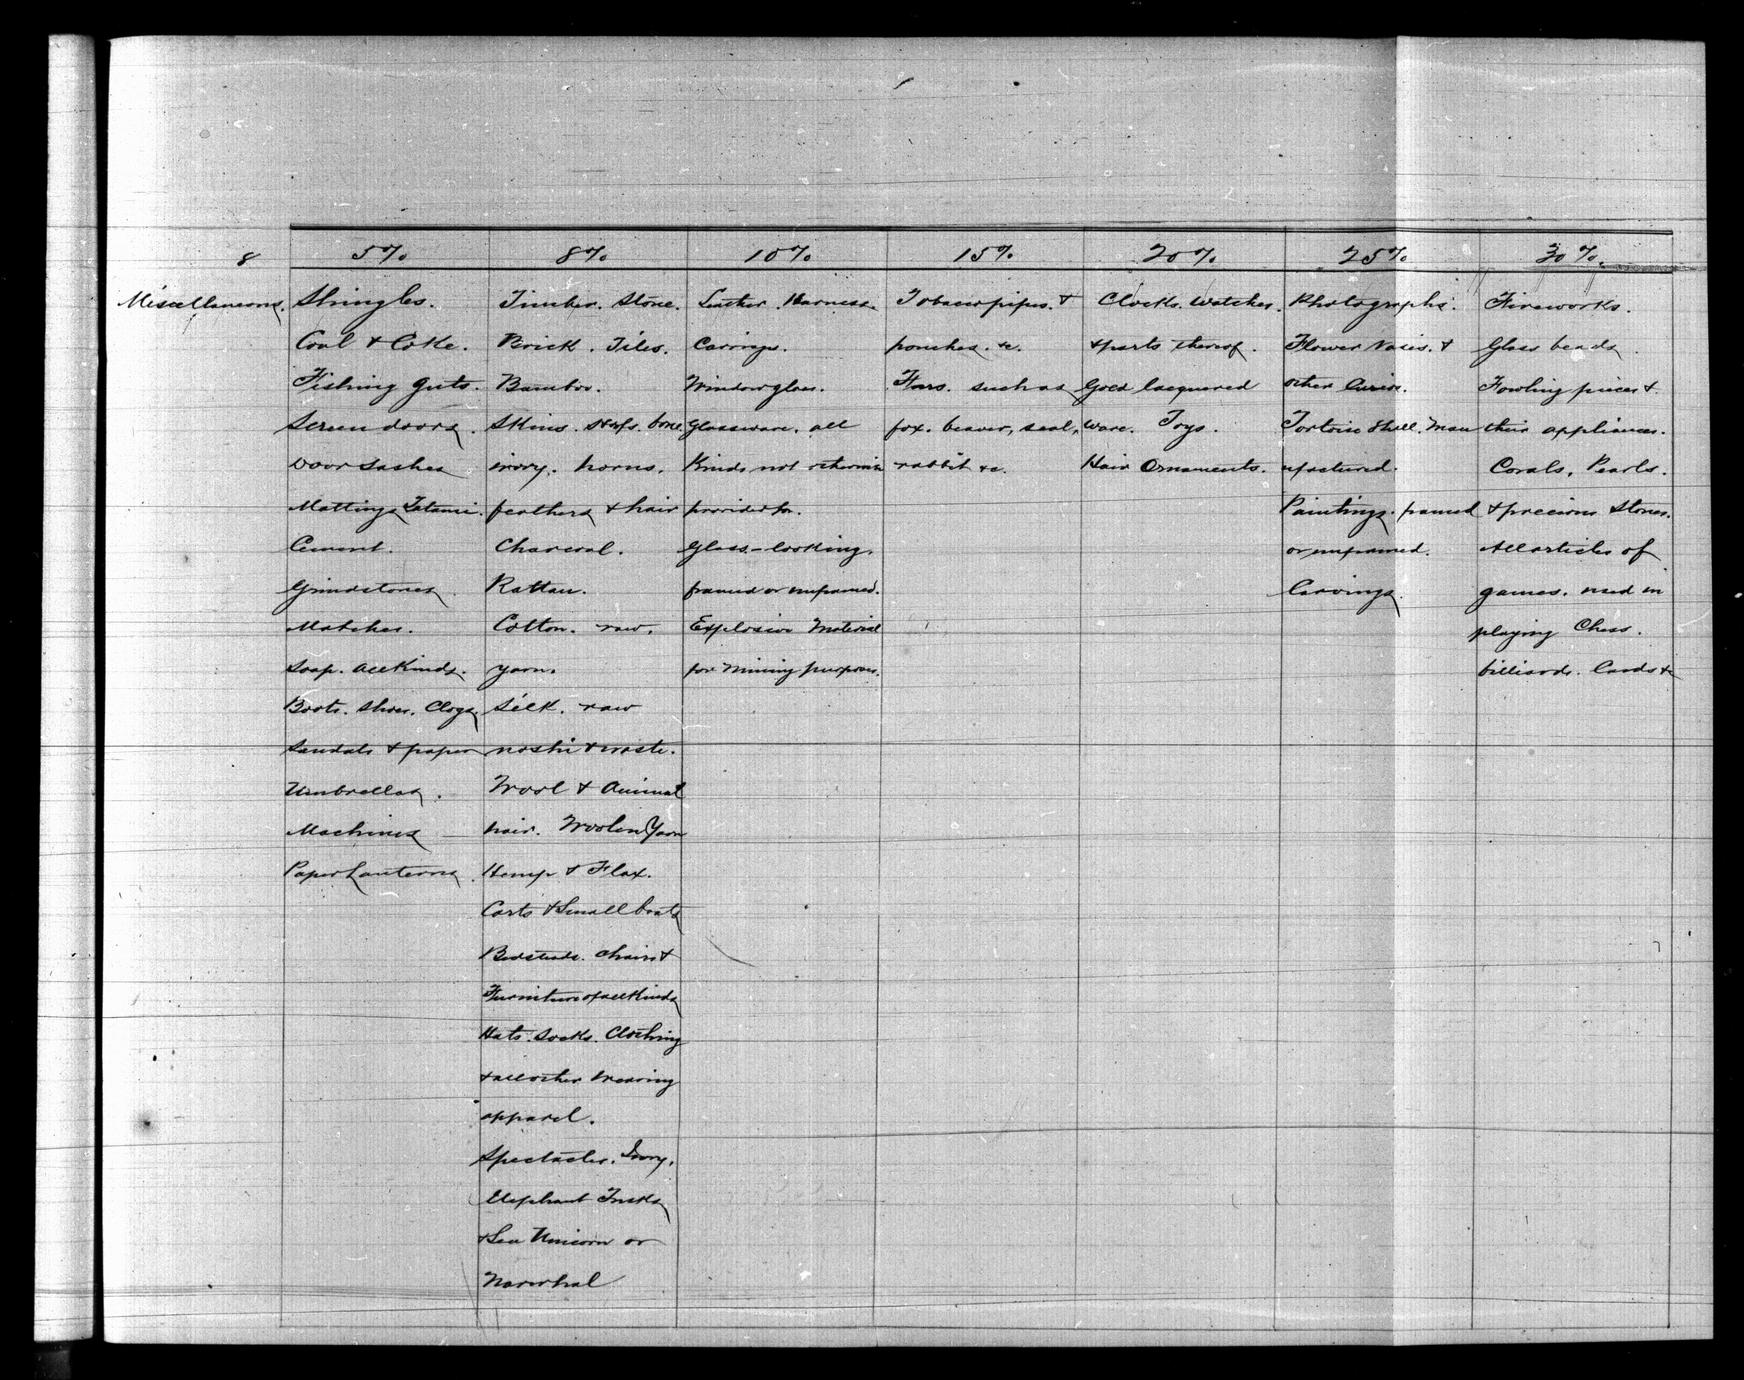 8
5%
8%
10%
15%
20%
25%
30%
Miscellaneous.
Shingles.
Coal & Coke.
Fishing guts.
Screen doors.
Door sashes
Mattings Tatami.
Cement.
Grindstones.
Matches.
Soap. all kinds.
Boots. Shoes. Clogs
Sandals & paper
Umbrellas.
Machines
Paper Lanterns.
Timber. Stone.
Brick. Tiles.
Bamboo.
Skins. bone
ivory. horns.
feathers & hair
Charcoal.
Rattan.
Cotton. raw.
yarn.
Silk. raw
noshi & waste.
Wool & Animal
hair. Woolen Yarn
Hemp & Flax.
Carts & Small boats
Bedsteads. Chairs &
Furniture of all kinds
Hats. Socks. Clothing
& all other wearing
apparel.
Spectacles. Ivory.
Elephant Tusks
& Sea Unicorn or
Narwhal
Leather. Harness.
Carriages.
Window glass.
Glassware. all
Kinds not otherwise
provided for.
Glass-looking.
framed or unframed.
Explosive Material
for Mining purposes.
Tobacco pipes. &
pouches. &c.
Furs. such as
fox. beaver, seal,
rabbit &c.
Clocks. Watches.
& parts thereof.
Gold lacquered
ware. Toys.
Hair Ornaments.
Photographs.
Flower Vases. &
other Curios.
Tortoise Shell. Man
ufactured.
Paintings. framed
or unframed.
Carvings.
Fireworks.
Glass beads.
Fowling pieces &
their appliances.
Corals. Pearls.
& precious Stones.
All articles of
games. used in
playing Chess.
billiards. Cards &c